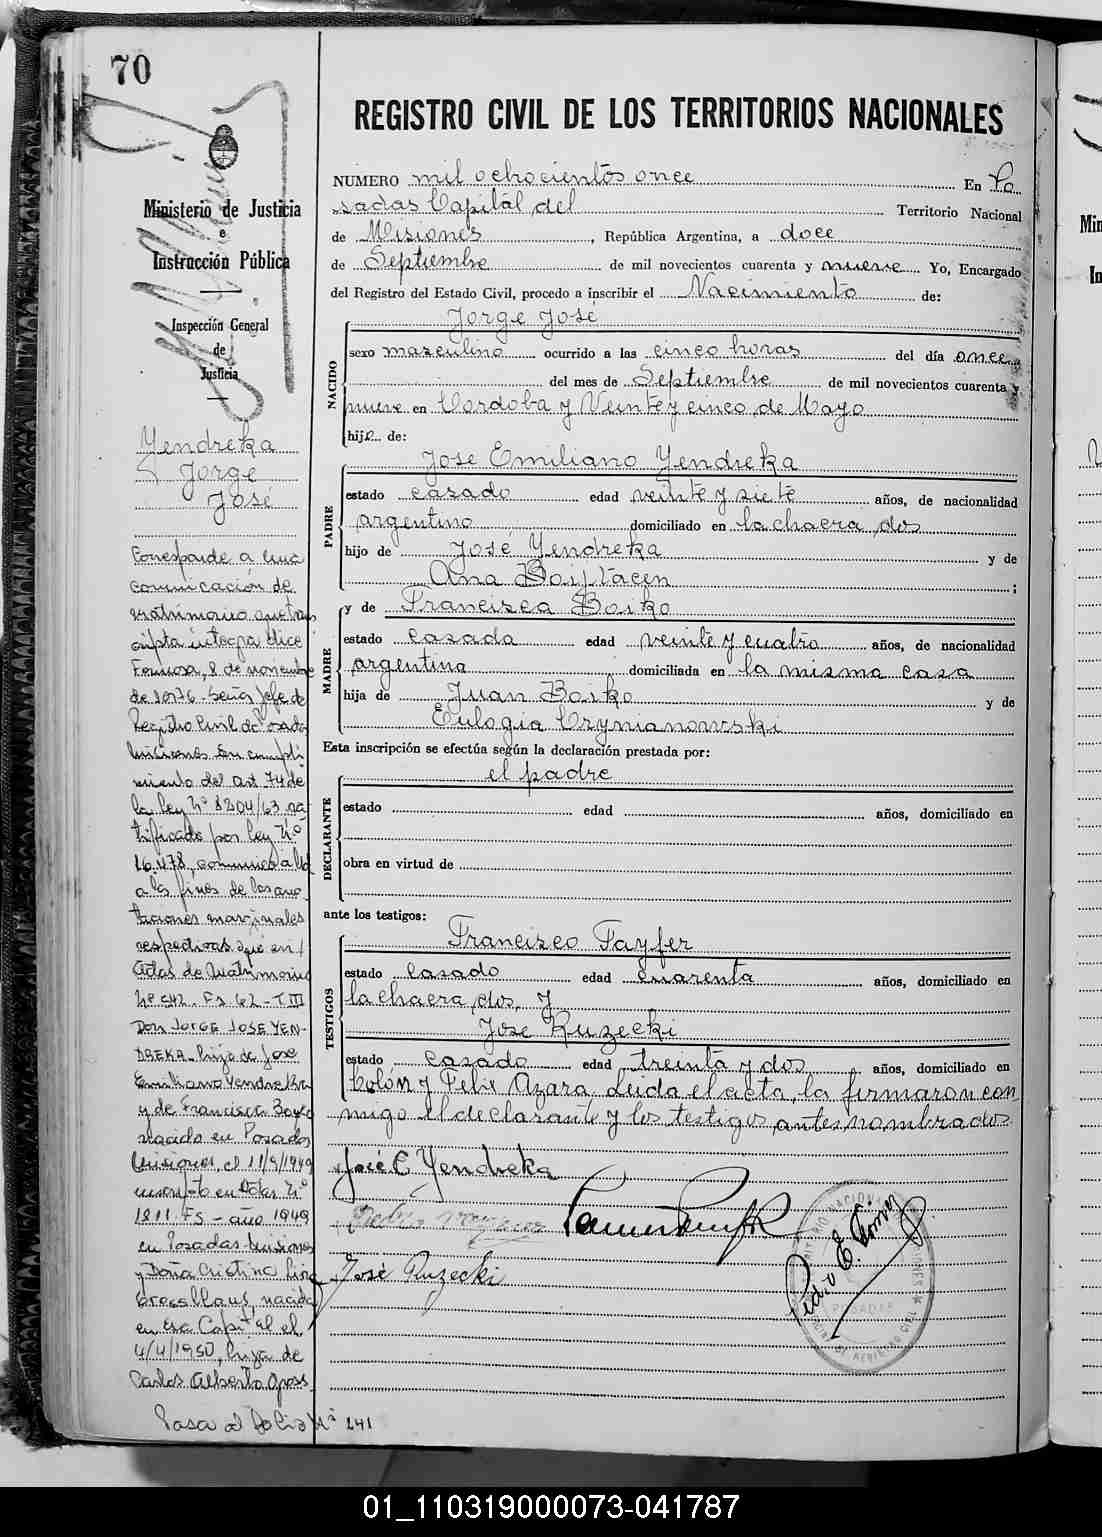 70
Ministerio de Justicia
e
Instrucción Pública
Inspección General
de
Justicia
Yendreka
Jorge
José
Corresponde a una
comunicación de
matrimonio que trans
cripta integra dice
Formosa, 8 de noviembre
de 1976 - Señor Jefe de
Registro Civil de Posadas
Misiones En cumpli-
miento del art 74 de
la ley Nº 8204/63 ra-
tificado por ley Nº
16.478, comunico a Ud
a los fines de las ano
taciones marginales
respectivas que en
Actas de Matrimonio
Nº 542. Fs 62 - T III
DON JORGE JOSE YEN-
DREKA - hijo de Jose
Emiliano Yendreka
y de Francisca Boyko
nacido en Posadas
Misiones, el 11/9/1949
inscripto en Actas Nº
1811. FS - año 1949
en Posadas Misiones
y Doña Cristina
nacida
en esa Capital el
4/4/1950, hija de
Carlos Alberto Gross
Pasa al folio Nº 241
REGISTRO CIVIL DE LOS TERRITORIOS NACIONALES
NUMERO mil ochocientos once En Po
sadas Capital del Territorio Nacional
de Misiones, República Argentina, a doce
de Septiembre de mil novecientos cuarenta y nueve Yo, Encargado
del Registro del Estado Civil, procedo a inscribir el Nacimiento de:
NACIDO
Jorge José
sexo masculino ocurrido a las cinco horas del día once
del mes de Septiembre de mil novecientos cuarenta y
nueve en Cordoba y Veinte y cinco de Mayo
hijo de:
PADRE
José Emiliano Yendreka
estado casado edad veinte y siete años, de nacionalidad
argentino domiciliado en la chacra dos
hijo de José Yendreka y de
Ana ;
MADRE
y de Francisca Boiko
estado casada edad veinte y cuatro años, de nacionalidad
argentina domiciliada en la misma casa
hija de Juan Boiko y de
Eulogia Crynianowski
Esta inscripción se efectúa según la declaración prestada por:
DECLARANTE
el padre
estado edad años, domiciliado en
obra en virtud de
ante los testigos:
TESTIGOS
Francisco Fayfer
estado casado edad cuarenta años, domiciliado en
la chacra dos, y
José Ruzecki
estado casado edad treinta y dos años, domiciliado en
Colón y Felix Azara. Leida el acta, la firmaron con
migo el declarante y los testigos antes nombrados
José E Yendreka
José Ruzecki
Pedro E. Gomez
POSADAS
01_110319000073-041787